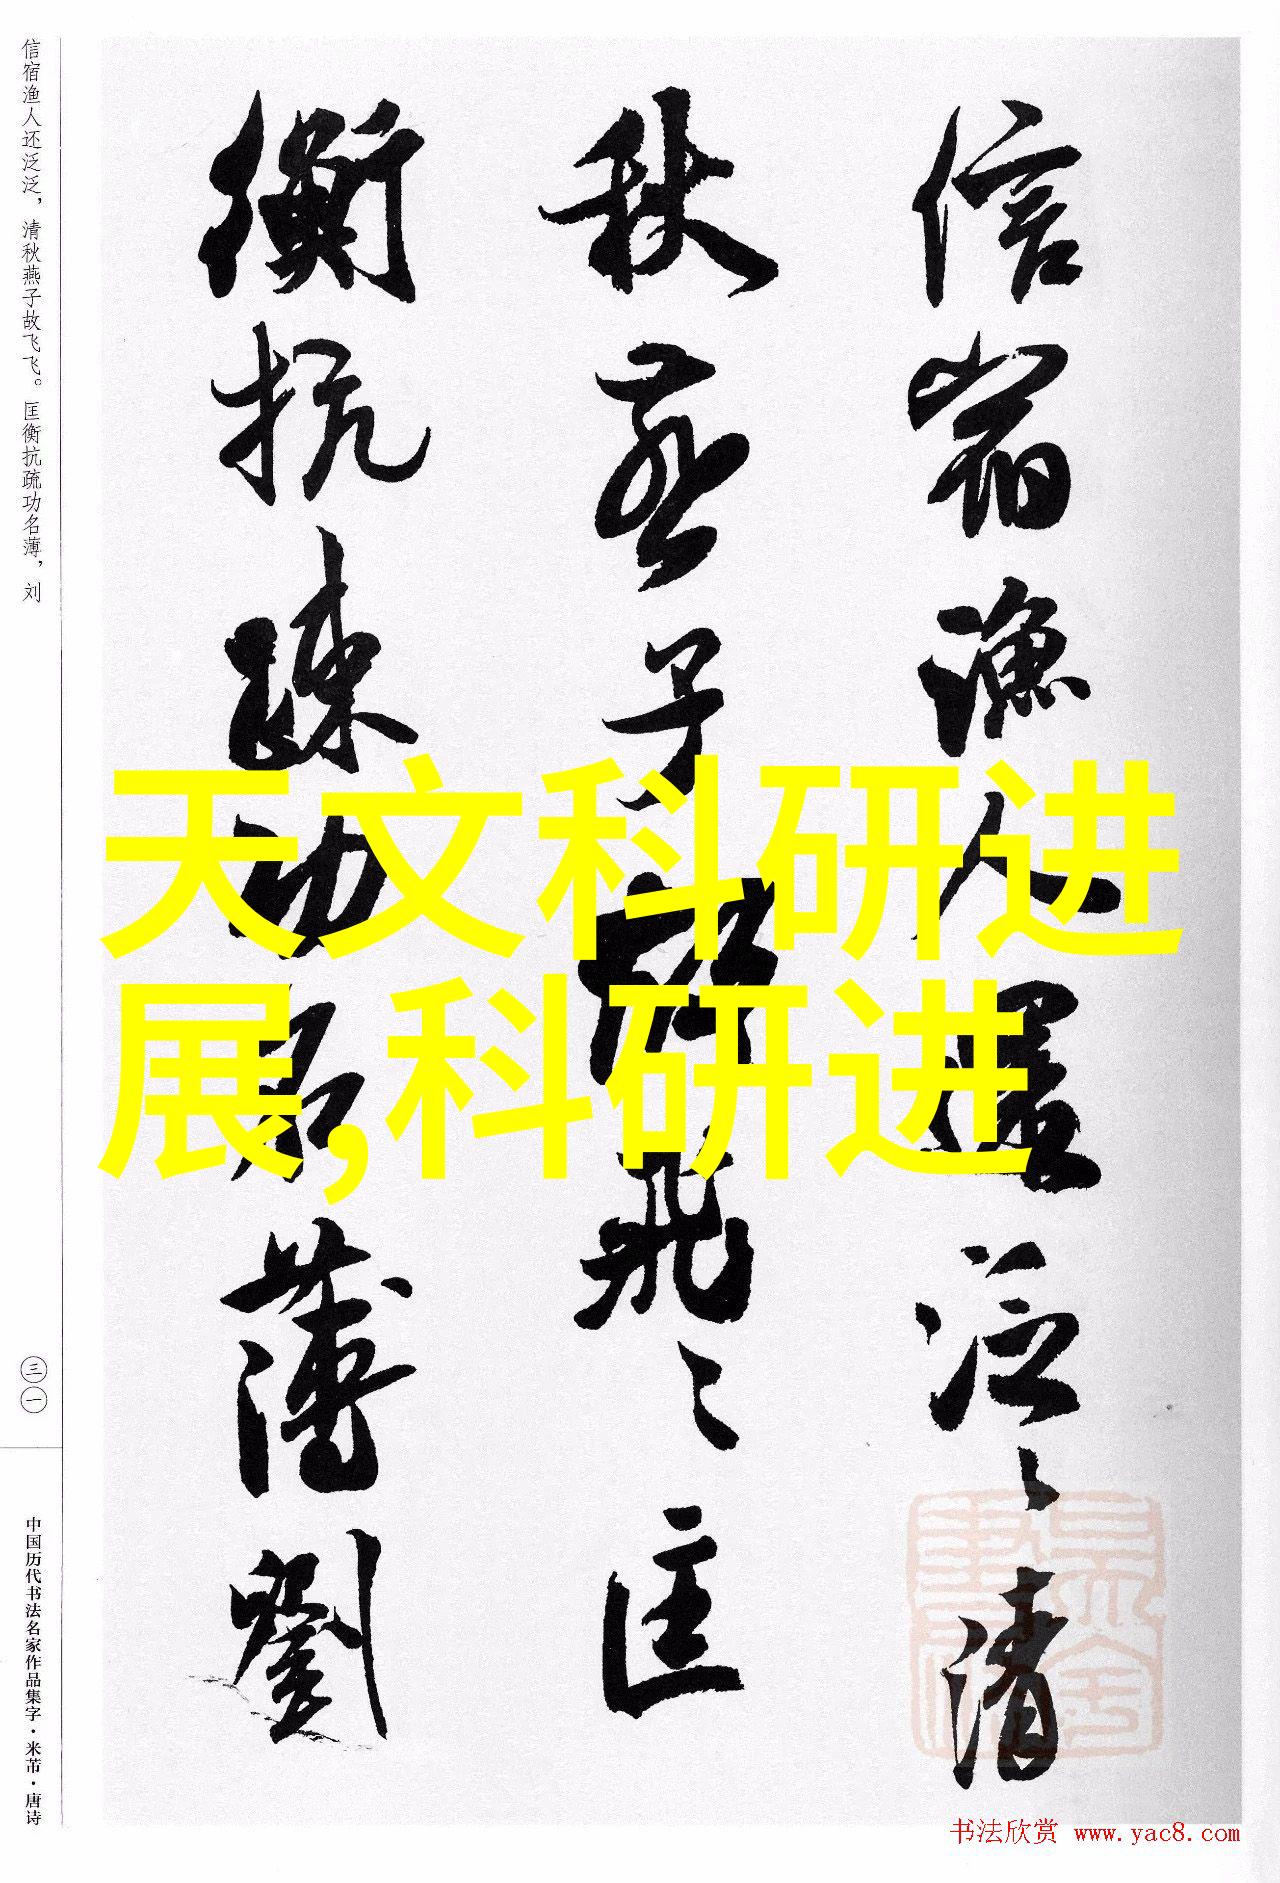 信宿渔人还泛泛，清秋燕子故飞飞。匡衡抗疏功名薄，刘
三一
中国历代书法名家作品集字·米芾·唐诗
信宿漁人還泛〻清
秋燕子故飛〻匡
衡抗疏功名薄劉
天文科研进
展,科研进
书法欣赏 www.yac8.com